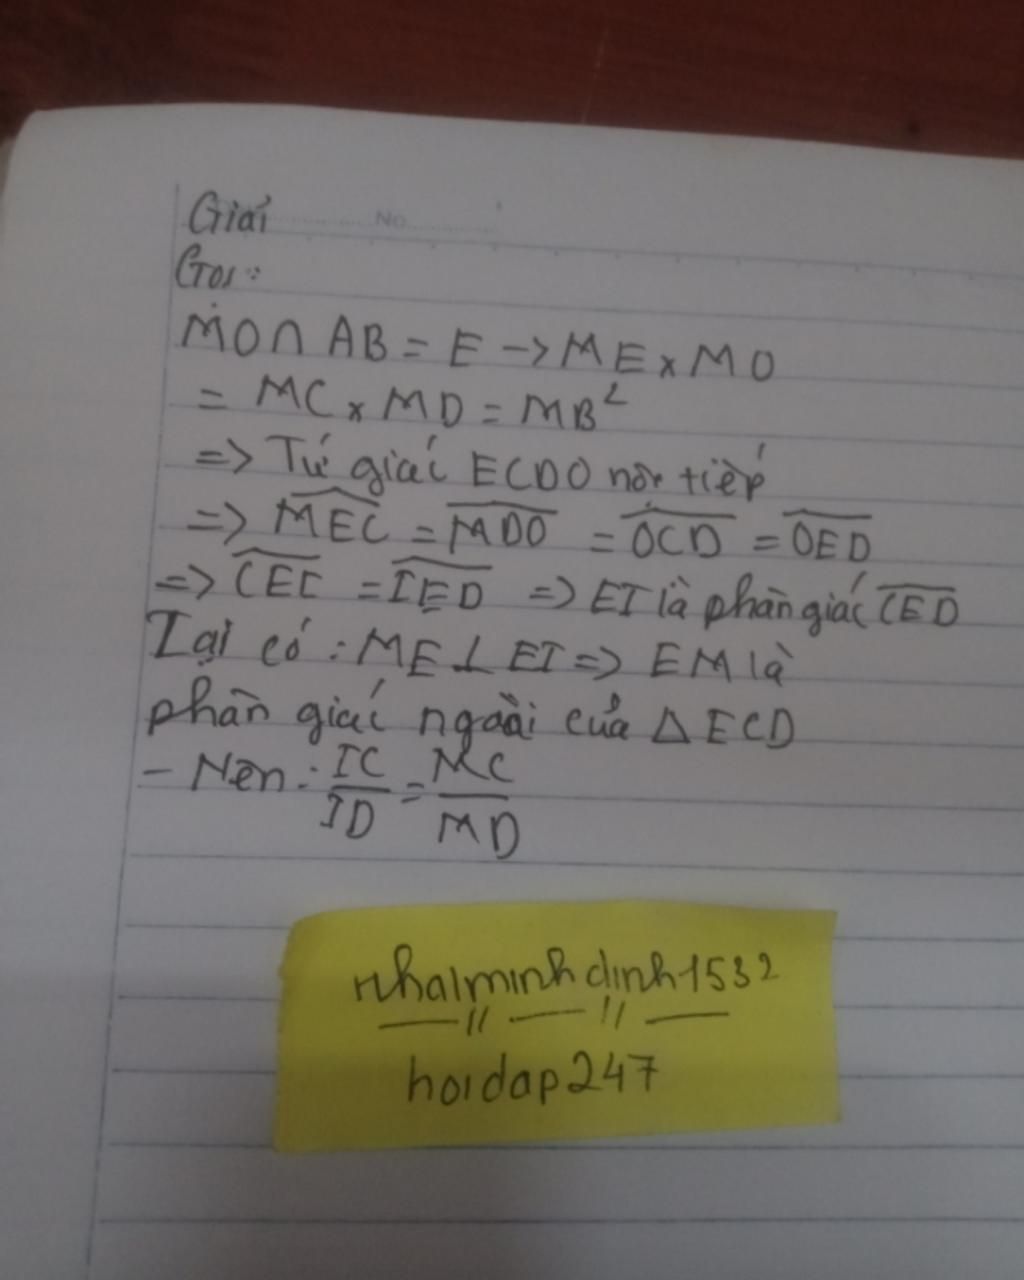 Giải
No
Gọi:
MO ∩ AB = E -> ME x MO
= MC x MD = MB²
=> Tứ giác ECDO nội tiếp
=> MEC = MDO = OCD = OED
=> CEI = IED => EI là phân giác CED
Lại có: ME ⊥ EI => EM là
phân giác ngoài của △ ECD
- Nên: IC/ID = MC/MD
nhaiminhdinh1532
hoidap247